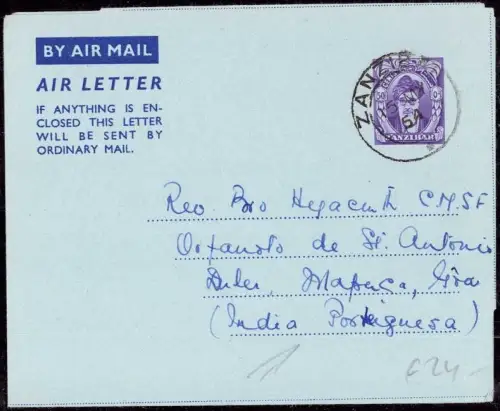 BY AIR MAIL
AIR LETTER
IF ANYTHING IS EN-
CLOSED THIS LETTER
WILL BE SENT BY
ORDINARY MAIL.
ZANZIB
54
ZANZIBAR
Rev. Bro Hyacinth C.M.S.F
Orfanato de St. Antonio
Duler, Mapuca, Goa
(India Portuguesa)